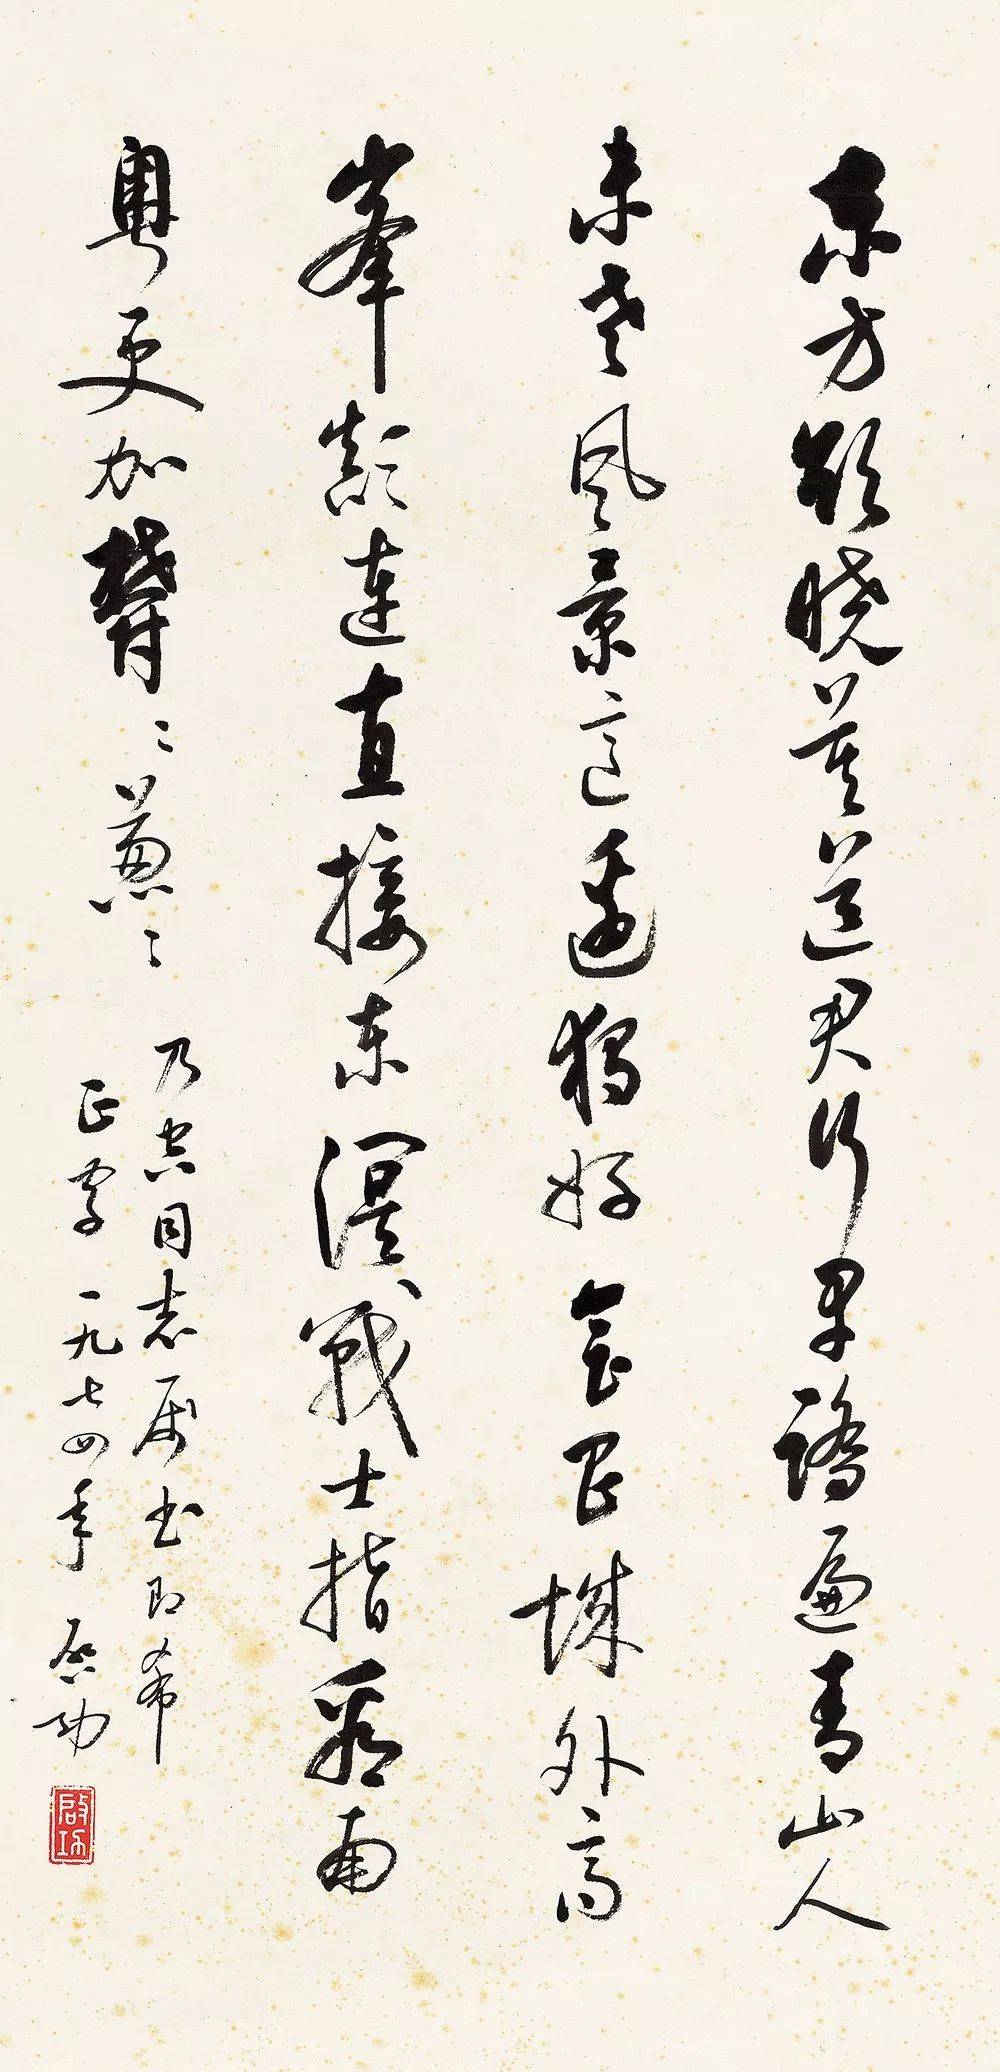 東方欲曉莫道君行早踏遍青山人
未老風景這邊獨好會昌城外高
峯顛連直接東溟戰士指看南
粵更加鬱〻蔥〻
乃同志属书即希
正字 一九七四年 启功
啟功